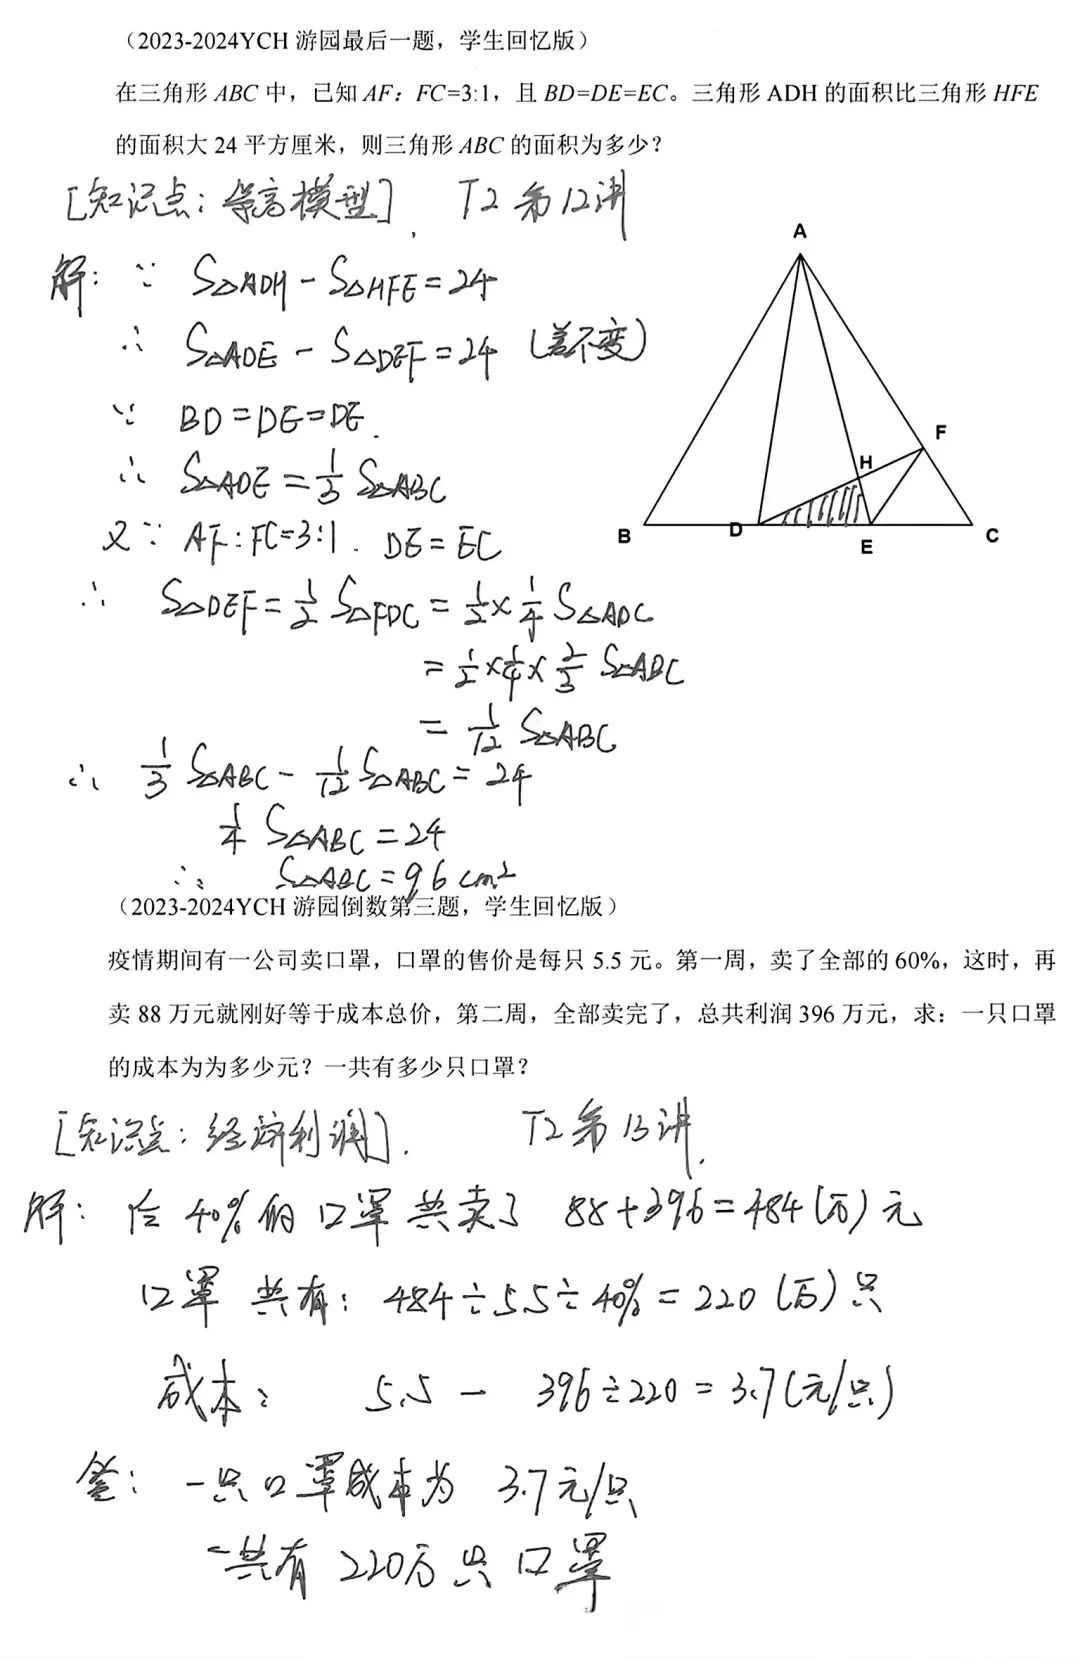 （2023-2024YCH 游园最后一题，学生回忆版）
在三角形 ABC 中，已知 AF：FC=3:1，且 BD=DE=EC。三角形 ADH 的面积比三角形 HFE
的面积大 24 平方厘米，则三角形 ABC 的面积为多少？
[知识点：等高模型]. T2 第12讲
解：∵ S△ADH - S△HFE = 24
∴ S△ADE - S△DEF = 24 (差不变)
∵ BD=DE=DE.
∴ S△ADE = 1/3 S△ABC
又∵ AF:FC=3:1. DE=EC
∴ S△DEF = 1/2 S△FDC = 1/2 × 1/4 S△ADC
= 1/2 × 1/4 × 2/3 S△ABC
= 1/12 S△ABC
∴ 1/3 S△ABC - 1/12 S△ABC = 24
1/4 S△ABC = 24
∴ S△ABC = 96 cm²
A
F
H
B
D
E
C
（2023-2024YCH 游园倒数第三题，学生回忆版）
疫情期间有一公司卖口罩，口罩的售价是每只 5.5 元。第一周，卖了全部的 60%，这时，再
卖 88 万元就刚好等于成本总价，第二周，全部卖完了，总共利润 396 万元，求：一只口罩
的成本为为多少元？一共有多少只口罩？
[知识点：经济利润]. T2 第13讲.
解： 40%的口罩共卖了 88+396=484(万)元
口罩共有：484÷5.5÷40%=220(万)只
成本： 5.5 - 396÷220=3.7(元/只)
答：一只口罩成本为 3.7元/只
一共有 220万只口罩